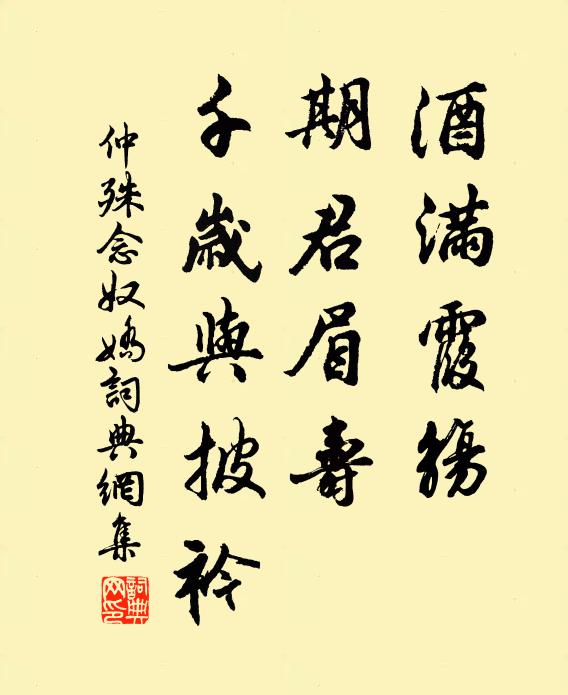 酒滿霞觴
期君眉壽
千歲與披衿
仲殊念奴嬌詞典網集
詞典網印